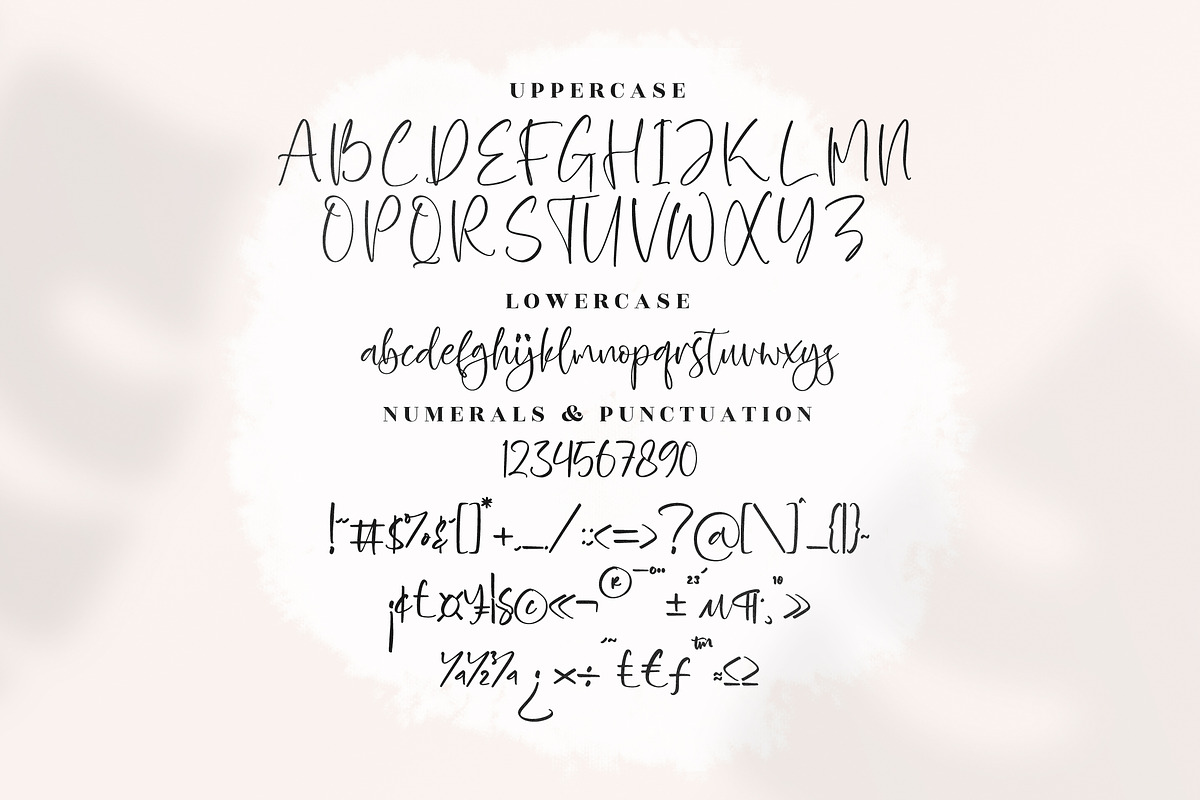 UPPERCASE
ABCDEFGHIJKLMN
OPQRSTUVWXYZ
LOWERCASE
abcdefghijklmnopqrstuvwxyz
NUMERALS & PUNCTUATION
1234567890
!"#$%&'[]*+,-./:;<=>?@[\]^_{|}~
¡¢£¤¥¦§©«¬®¯°¨±²³´µ¶¸¹º»
¼½¾¿×÷ˆ˜₤€ƒ™≈≤≥